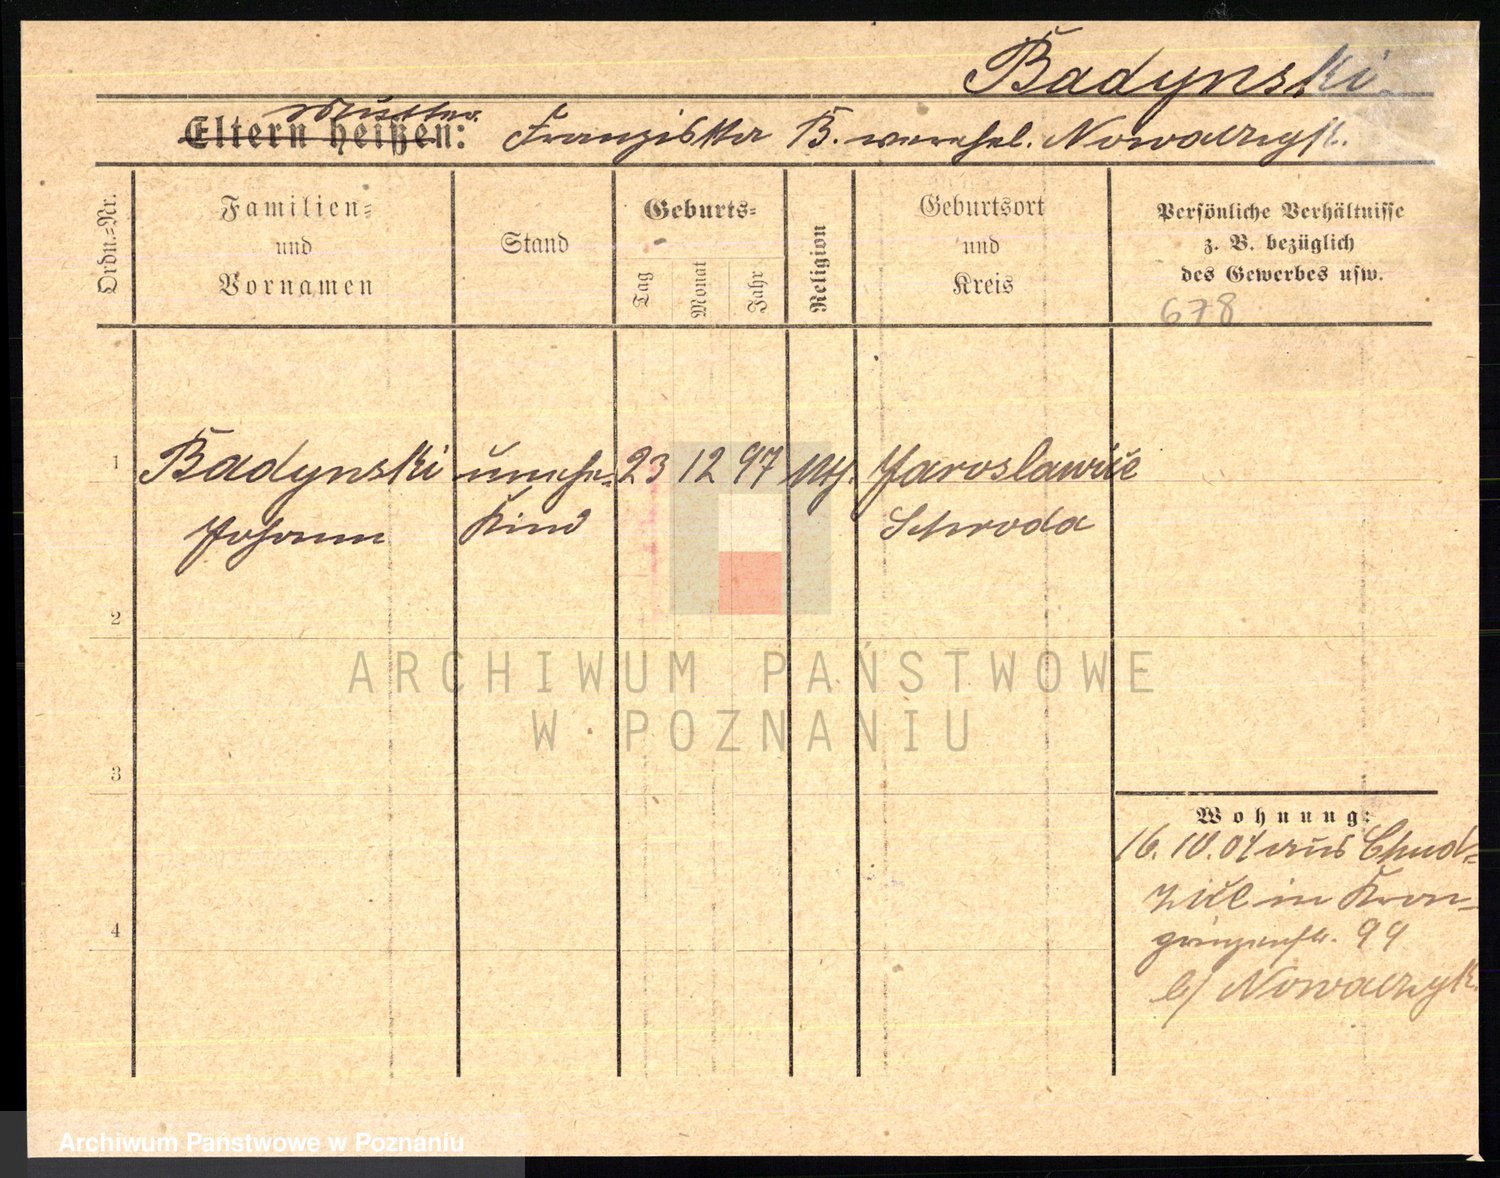 Badynski.
Mutter
Eltern heißen: Franziska B. verehel. Nowaczyk.
Ordn.-Nr.
Familien-
und
Vornamen
Stand
Geburts-
Tag
Monat
Jahr
Religion
Geburtsort
und
Kreis
Persönliche Verhältnisse
z. B. bezüglich
des Gewerbes usw.
678
1 Badynski unehe- 23 12 97 kth. Jaroslawiče
Johann Kind Schroda
2
3
4
ARCHIWUM PAŃSTWOWE
W POZNANIU
Wohnung:
16. 10. 01 aus Chud-
zice in Kron-
prinzenstr. 99
b/ Nowaczyk.
Archiwum Państwowe w Poznaniu